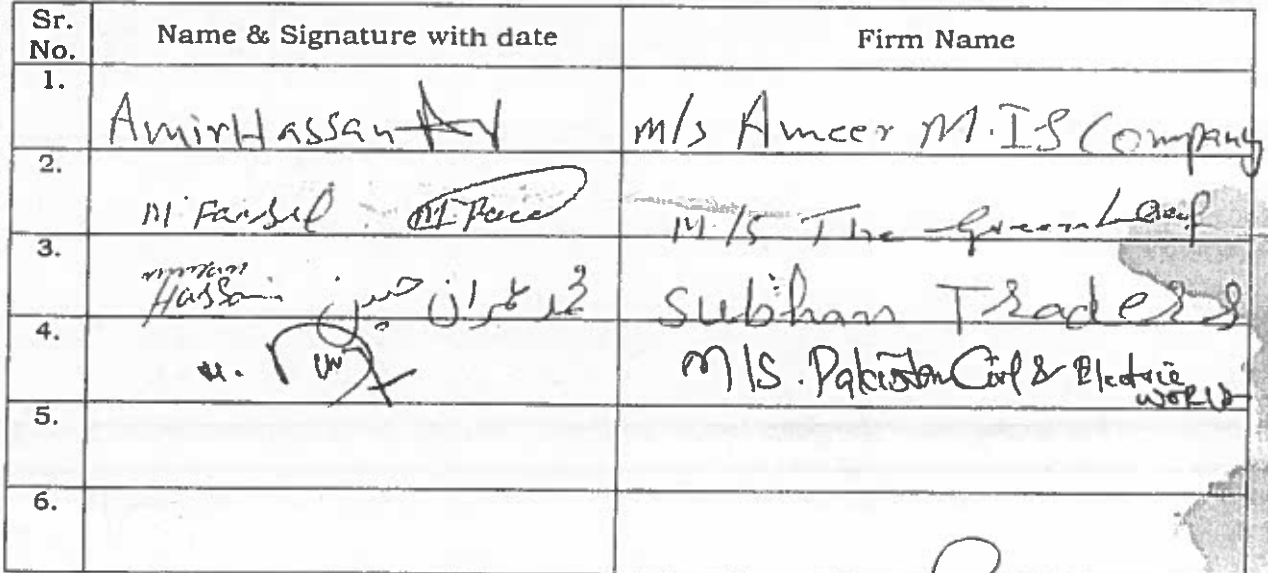 Sr. No. Name & Signature with date Firm Name
1. Amir Hassan m/s Ameer M.I.S Company
2. M. Faisal M/s The Green Leaf
3. Hassain محمد عمران حسین Subhan Traders
4. M/S. Pakistan Civil & Electric
World
5.
6.